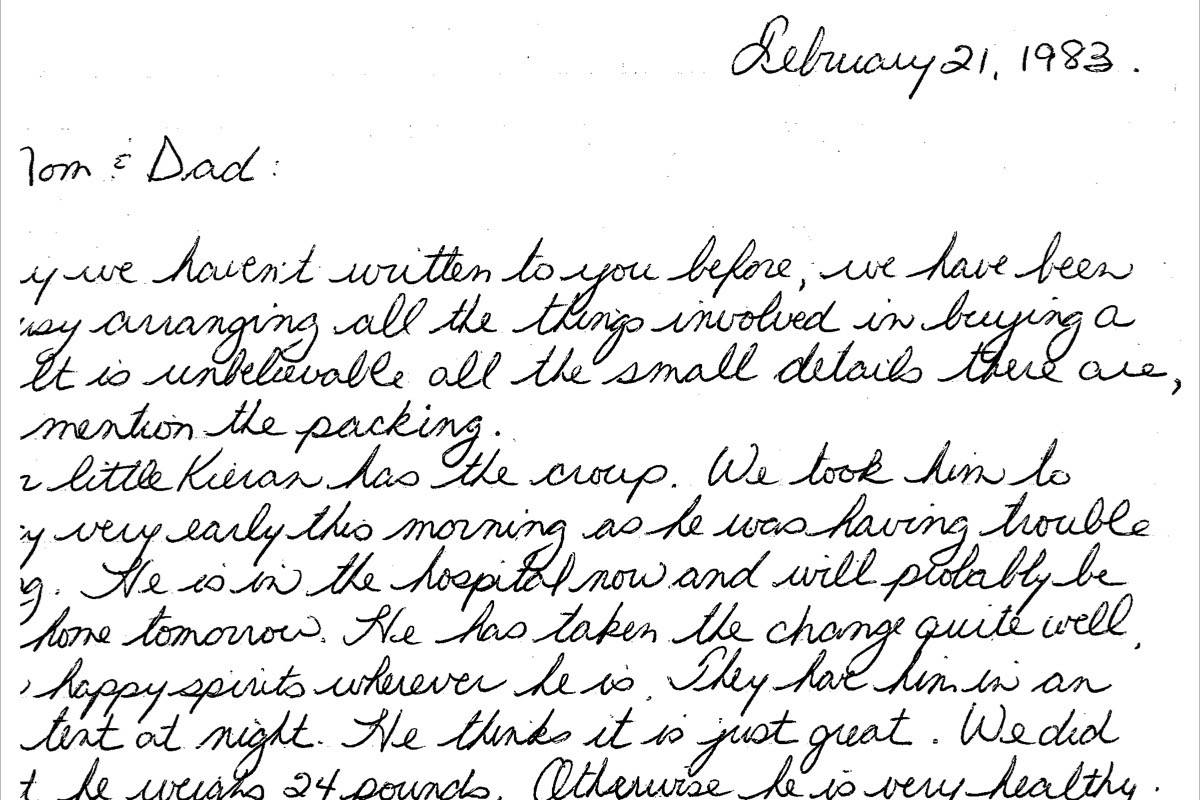 February 21, 1983.
Tom & Dad:
y we haven't written to you before, we have been
usy arranging all the things involved in buying a
It is unbelievable all the small details there are,
mention the packing.
r little Kieran has the croup. We took him to
y very early this morning as he was having trouble
g. He is in the hospital now and will probably be
home tomorrow. He has taken the change quite well,
happy spirits wherever he is. They have him in an
tent at night. He thinks it is just great. We did
t he weighs 24 pounds. Otherwise he is very healthy.